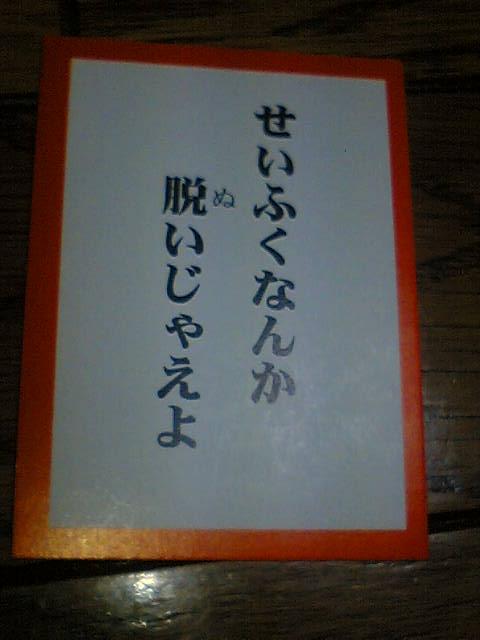 せいふくなんか
脱いじゃえよ
ぬ